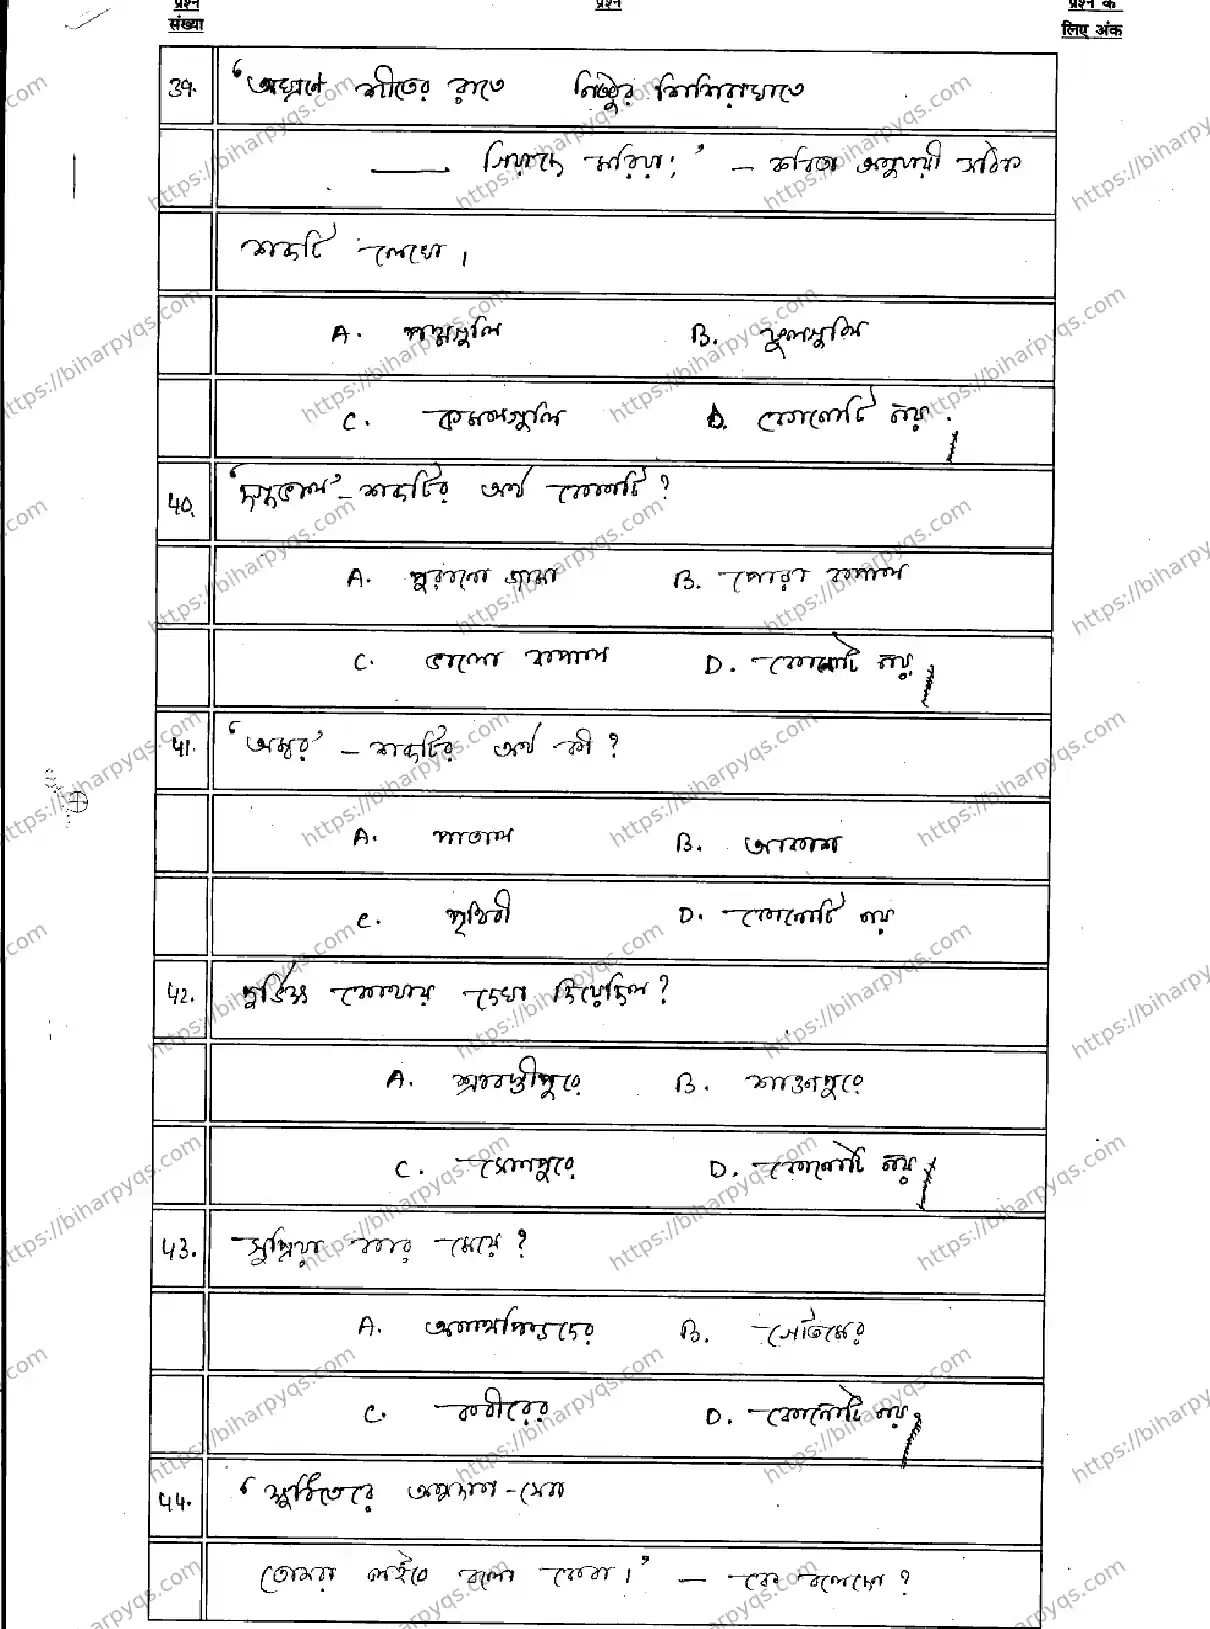 प्रश्न संख्या
प्रश्न
प्रश्न के लिए अंक
39. 'অঘ্রাণে শীতের রাতে নিষ্ঠুর শিশিরাঘাতে
____ গিয়াছে মরিয়া;' – কবিতা অনুযায়ী সঠিক
শব্দটি লেখো।
A. পদ্মগুলি B. ফুলগুলি
C. কমলগুলি D. কোনোটি নয়।
40. 'দগ্ধভাল' – শব্দটির অর্থ কোনটি?
A. পুরানো জামা B. পোরা কপাল
C. ভালো কপাল D. কোনোটি নয়।
41. 'অম্বর' – শব্দটির অর্থ কী?
A. পাতাল B. আকাশ
C. পৃথিবী D. কোনোটি নয়
42. দুর্ভিক্ষ কোথায় দেখা দিয়েছিল?
A. শ্রাবস্তীপুরে B. শাওনপুরে
C. সোনপুরে D. কোনোটি নয়।
43. সুপ্রিয়া কার মেয়ে?
A. অনাথপিণ্ডদের B. গৌতমের
C. কবীরের D. কোনোটি নয়।
44. 'ক্ষুধিতেরে অন্নদান-সেবা
তোমরা লইবে বলো কেবা।' – কে বলেছে?
https://biharpyqs.com